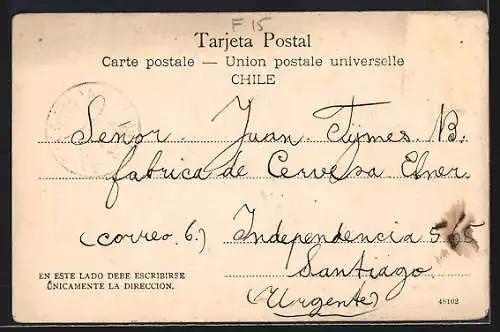 F 15
Tarjeta Postal
Carte postale — Union postale universelle
CHILE
Señor. Juan. Tymes. B.
fabrica de Cervesa Ebner.
(correo 6.) Independencia 565
Santiago
(Urgente)
EN ESTE LADO DEBE ESCRIBIRSE
ÚNICAMENTE LA DIRECCION.
48102